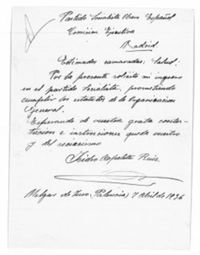 Partido Socialista Obrero Español
Comisión Ejecutiva
Madrid
Estimados camaradas, Salud:
Por la presente solicito mi ingreso
en el partido Socialista, prometiendo
cumplir los estatutos de la Organización
General.
Esperando de vuestra grata contes-
tación e instrucciones queda vuestro
y del socialismo
Isidro Ruiz
Melgar de (Palencia) 7 Abril de 1936